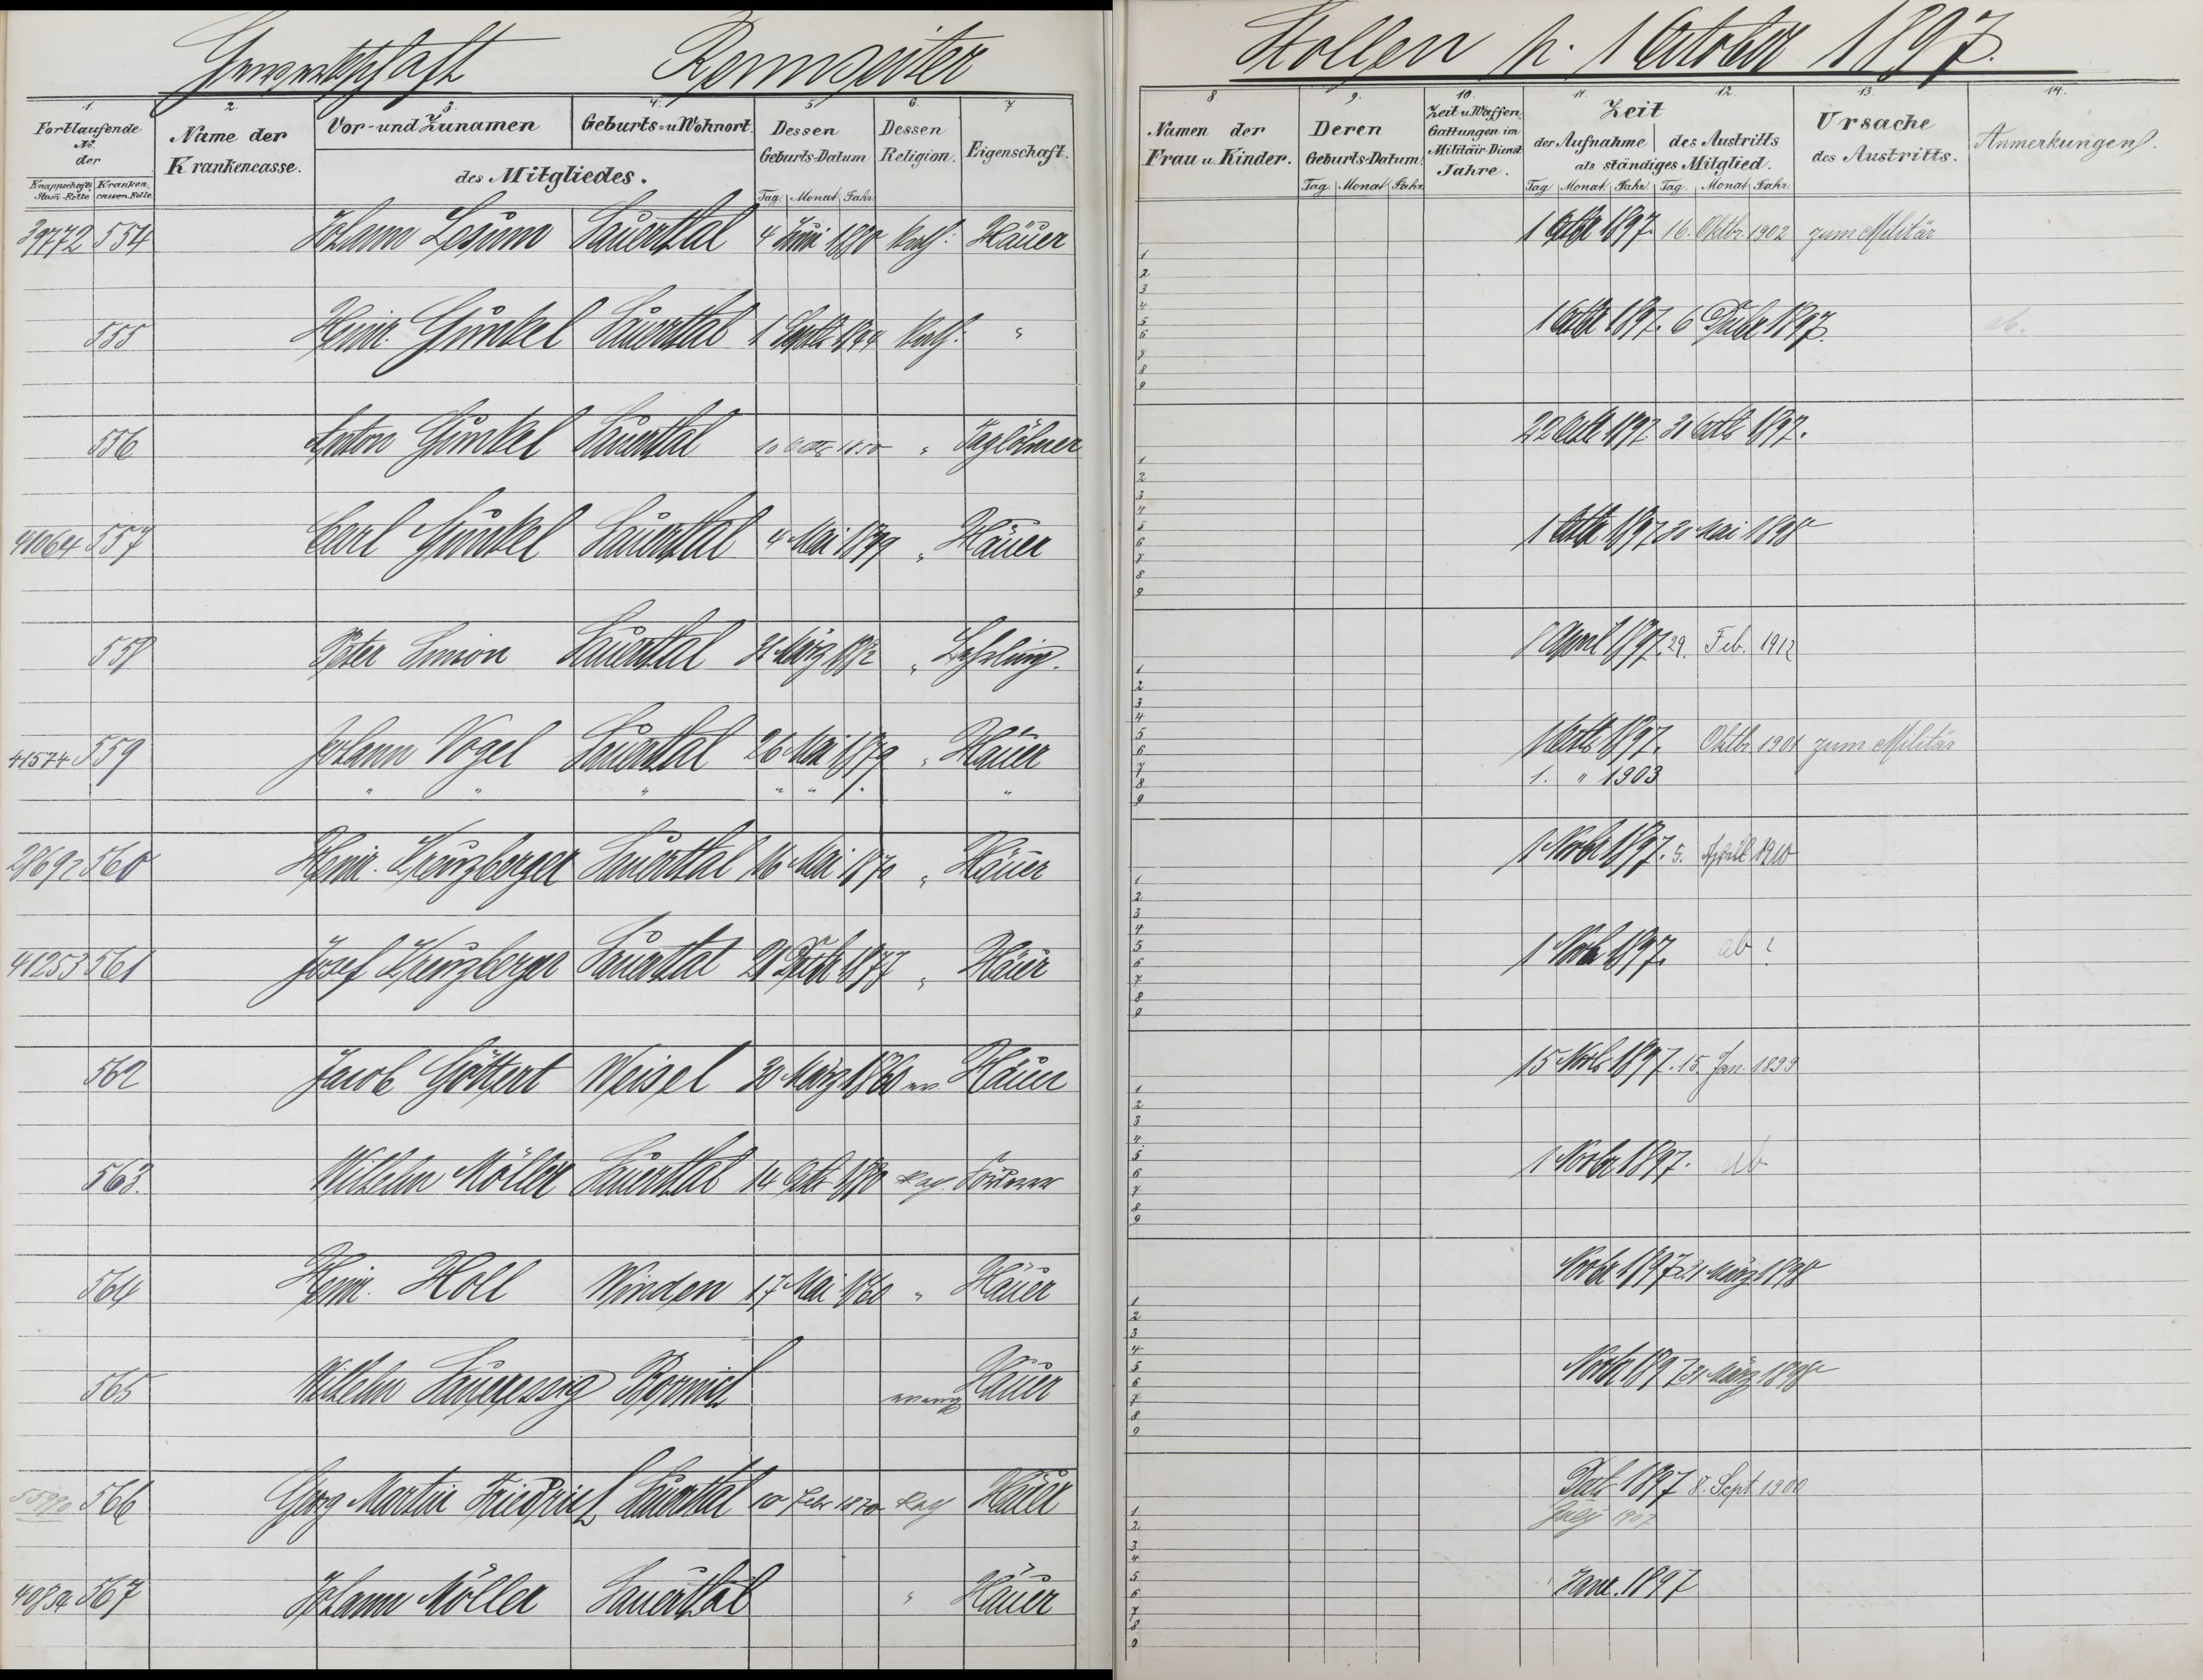 Gewerkschaft Rennseiter Stollen p. 1 October 1897.
1. 2. 3. 4. 5. 6. 7 8 9. 10. 11. 12. 13. 14.
Fortlaufende No. der
Knappschafts Stam-Rolle Kranken cassen-Rolle
Name der Krankencasse.
Vor- und Zunamen Geburts- u Wohnort.
des Mitgliedes.
Dessen Geburts-Datum
Tag. Monat Jahr.
Dessen Religion.
Eigenschaft.
Namen der Frau u. Kinder.
Deren Geburts-Datum.
Tag Monat Jahr.
Zeit u Waffen Gattungen im Militäir-Dienst Jahre.
Zeit
der Aufnahme des Austritts
als ständiges Mitglied.
Tag Monat Jahr. Tag. Monat Jahr.
Ursache des Austritts.
Anmerkungen.
39772 554 Johann Lesum Sauerthal 4 Juni 1880 kath: Häuer 1 Octbr 1897. 16. Oktbr. 1902 zum Militär
555 Heinr. Gunkel Sauerthal 1 kath: " 1 Octbr 1897. 6 1897. ab.
556 Anton Gunkel Sauerthal 10 Octbr 1850 " Taglöhner 22 Octb 1897 31 Octb 1897.
41064 557 Carl Gunkel Sauerthal 4 Mai 1879 " Häuer 1 Octbr 1897 30 Mai 1898
558 Peter Simon Sauerthal 31 März 1882 " 1 April 1897. 29. Feb. 1912
41574 559 Johann Vogel Sauerthal 26 Mai 1879 " Häuer 1 Octb 1897. Oktbr. 1901 zum Militär
" " " " " " " 1. " 1903
560 Heinr. Kreuzberger Sauerthal 16 Mai 1870 " Häuer 1 Novbr 1897. 5. April 1910
41253 561 Josef Kreuzberger Sauerthal 21 1877 " Häuer 1 Novb 1897. ab ?
562 Jacob Göttert Weisel 30 März 1860 ev. Häuer 15 Novb 1897. 15. Jan. 1899
563. Wilhelm Möller Sauerthal 14 Okt 1880 1 Novbr 1897. ab
564 Heinr. Holl Winden 17 Mai 1860 " Häuer Novbr 1897 31 März 1898
565 Wilhelm Saueressig Bornich evang Häuer Novbr 1897 31 März 1898
566 Georg Martin Friedrich Sauerthal 10 Febr 1870 kath Häuer Decb 1897 8. Sept 1900
July 1907
567 Johann Möller Sauerthal " Häuer Janr. 1897
1
2
3
4
5
6
7
8
9